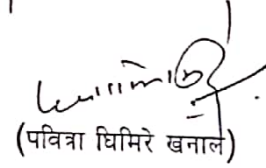 (पवित्रा घिमिरे खनाल)